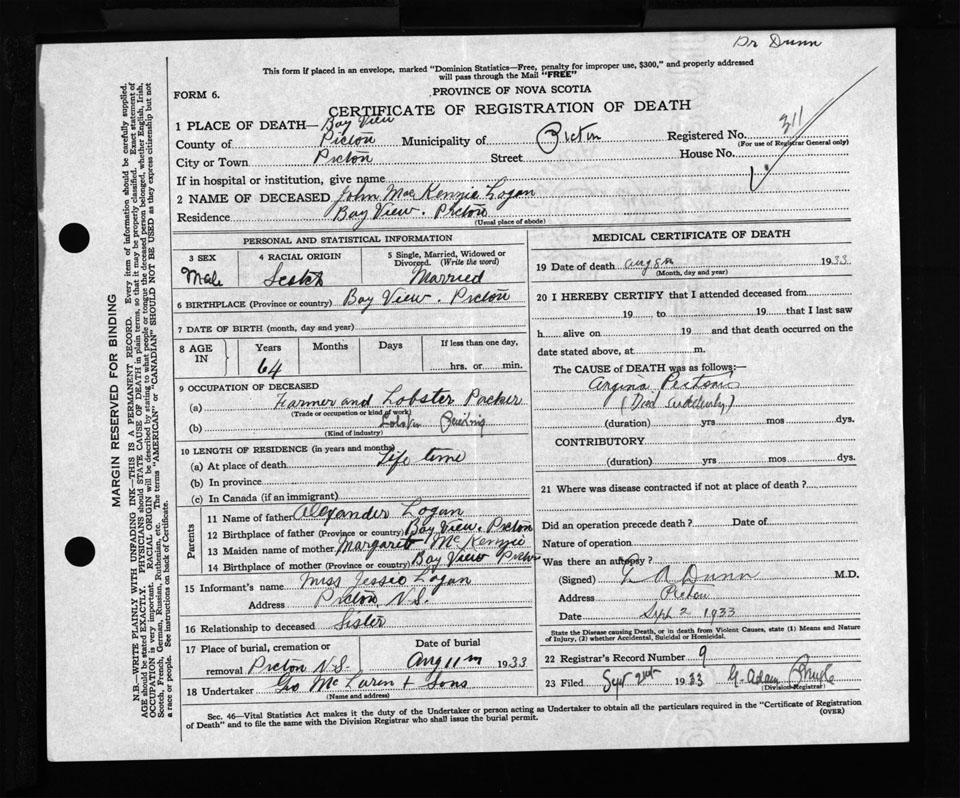 Dr Dunn
This form if placed in an envelope, marked "Dominion Statistics—Free, penalty for improper use, $300," and properly addressed
will pass through the Mail "FREE"
FORM 6.
PROVINCE OF NOVA SCOTIA
CERTIFICATE OF REGISTRATION OF DEATH
1 PLACE OF DEATH— Bay View
County of Pictou Municipality of Pictou Registered No. 311
(For use of Registrar General only)
City or Town Pictou Street House No.
If in hospital or institution, give name
2 NAME OF DECEASED John MacKenzie Logan
Residence Bay View. Pictou
(Usual place of abode)
PERSONAL AND STATISTICAL INFORMATION
3 SEX Male
4 RACIAL ORIGIN Scotch
5 Single, Married, Widowed or Divorced. (Write the word) Married
6 BIRTHPLACE (Province or country) Bay View. Pictou
7 DATE OF BIRTH (month, day and year)
8 AGE IN Years Months Days If less than one day,
64 hrs. or min.
9 OCCUPATION OF DECEASED
(a) Farmer and Lobster Packer
(Trade or occupation or kind of work)
(b) Lobster
(Kind of industry)
10 LENGTH OF RESIDENCE (in years and months)
(a) At place of death Life time
(b) In province
(c) In Canada (if an immigrant)
Parents
11 Name of father Alexander Logan
12 Birthplace of father (Province or country) Bay View. Pictou
13 Maiden name of mother Margaret McKenzie
14 Birthplace of mother (Province or country) Bay View Pictou
15 Informant's name Miss Jessie Logan
Address Pictou, N.S.
16 Relationship to deceased Sister
17 Place of burial, cremation or removal Pictou N.S. Date of burial Aug 11th 1933
18 Undertaker Geo McLaren & Sons
(Name and address)
MEDICAL CERTIFICATE OF DEATH
19 Date of death Aug 8th 1933
(Month, day and year)
20 I HEREBY CERTIFY that I attended deceased from
19 to 19 that I last saw
h alive on 19 and that death occurred on the
date stated above, at m.
The CAUSE of DEATH was as follows:—
Angina Pectoris
(Died suddenly)
(duration) yrs mos dys.
CONTRIBUTORY
(duration) yrs mos dys.
21 Where was disease contracted if not at place of death?
Did an operation precede death? Date of
Nature of operation
Was there an autopsy?
(Signed) Dunn M.D.
Address Pictou
Date Sept 2 1933
State the Disease causing Death, or in death from Violent Causes, state (1) Means and Nature
of Injury, (2) whether Accidental, Suicidal or Homicidal.
22 Registrar's Record Number 9
23 Filed Sept 2nd 1933 G. Adam
(Division Registrar)
Sec. 46—Vital Statistics Act makes it the duty of the Undertaker or person acting as Undertaker to obtain all the particulars required in the "Certificate of Registration
of Death" and to file the same with the Division Registrar who shall issue the burial permit. (OVER)
MARGIN RESERVED FOR BINDING
N.B.—WRITE PLAINLY WITH UNFADING INK—THIS IS A PERMANENT RECORD. Every item of information should be carefully supplied.
AGE should be stated EXACTLY. PHYSICIANS should STATE CAUSE OF DEATH in plain terms, so that it may be properly classified. Exact statement of
OCCUPATION is very important. RACIAL ORIGIN will be described by stating to what people or tongue the deceased person belonged, whether English, Irish,
Scotch, French, German, Russian, Ruthenian, etc. The terms "AMERICAN" or "CANADIAN" SHOULD NOT BE USED as they express citizenship but not
a race or people. See instructions on back of Certificate.